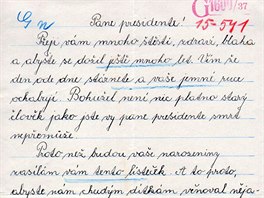 G 1000/37
G n Pane presidente! 15-541
Přeji vám mnoho štěstí, zdraví, blaha
a abyste se dožil ještě mnoho let. Vím že
den ode dne stárnete a vaše jemné ruce
ochabují. Bohužel není nic platno starý
člověk jako jste vy pane presidente smrt
nepřemůže.
Proto než budou vaše narozeniny
zasílám vám tento lísteček. A to proto,
abyste nám, chudým dítkám, věnoval něja-